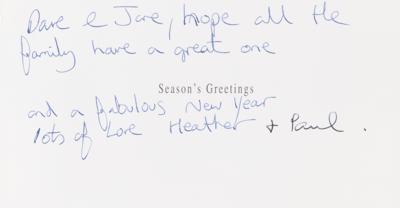 Dave & Jane, hope all the
family have a great one
Season's Greetings
and a fabulous New Year
lots of Love Heather + Paul.